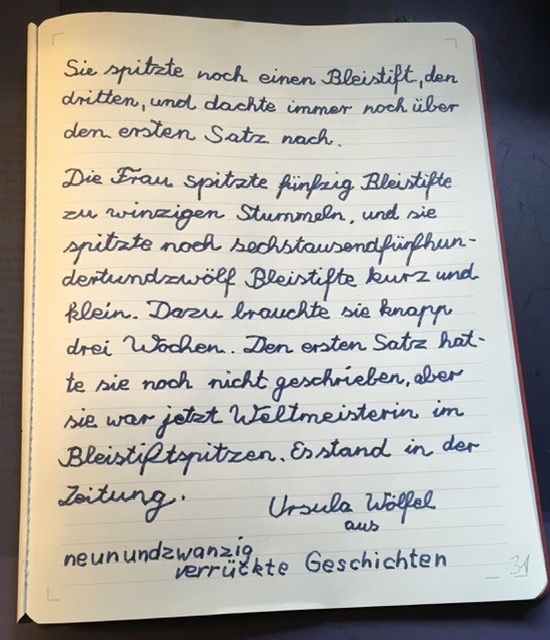 Sie spitzte noch einen Bleistift, den
dritten, und dachte immer noch über
den ersten Satz nach.
Die Frau spitzte fünfzig Bleistifte
zu winzigen Stummeln, und sie
spitzte noch sechstausendfünfhun-
dertundzwölf Bleistifte kurz und
klein. Dazu brauchte sie knapp
drei Wochen. Den ersten Satz hat-
te sie noch nicht geschrieben, aber
sie war jetzt Weltmeisterin im
Bleistiftspitzen. Es stand in der
Zeitung.
Ursula Wölfel
aus
neunundzwanzig
verrückte Geschichten
31